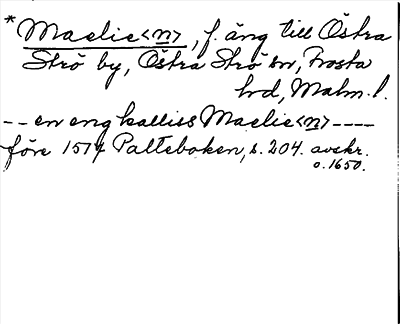 *Maelie<n>, f. äng till Östra
Strö by, Östra Strö sn, Frosta
hrd, Malm. l.
-- en eng kalliss Maelie<n> ----
före 1574 Palteboken, s. 204. avskr.
o. 1650.